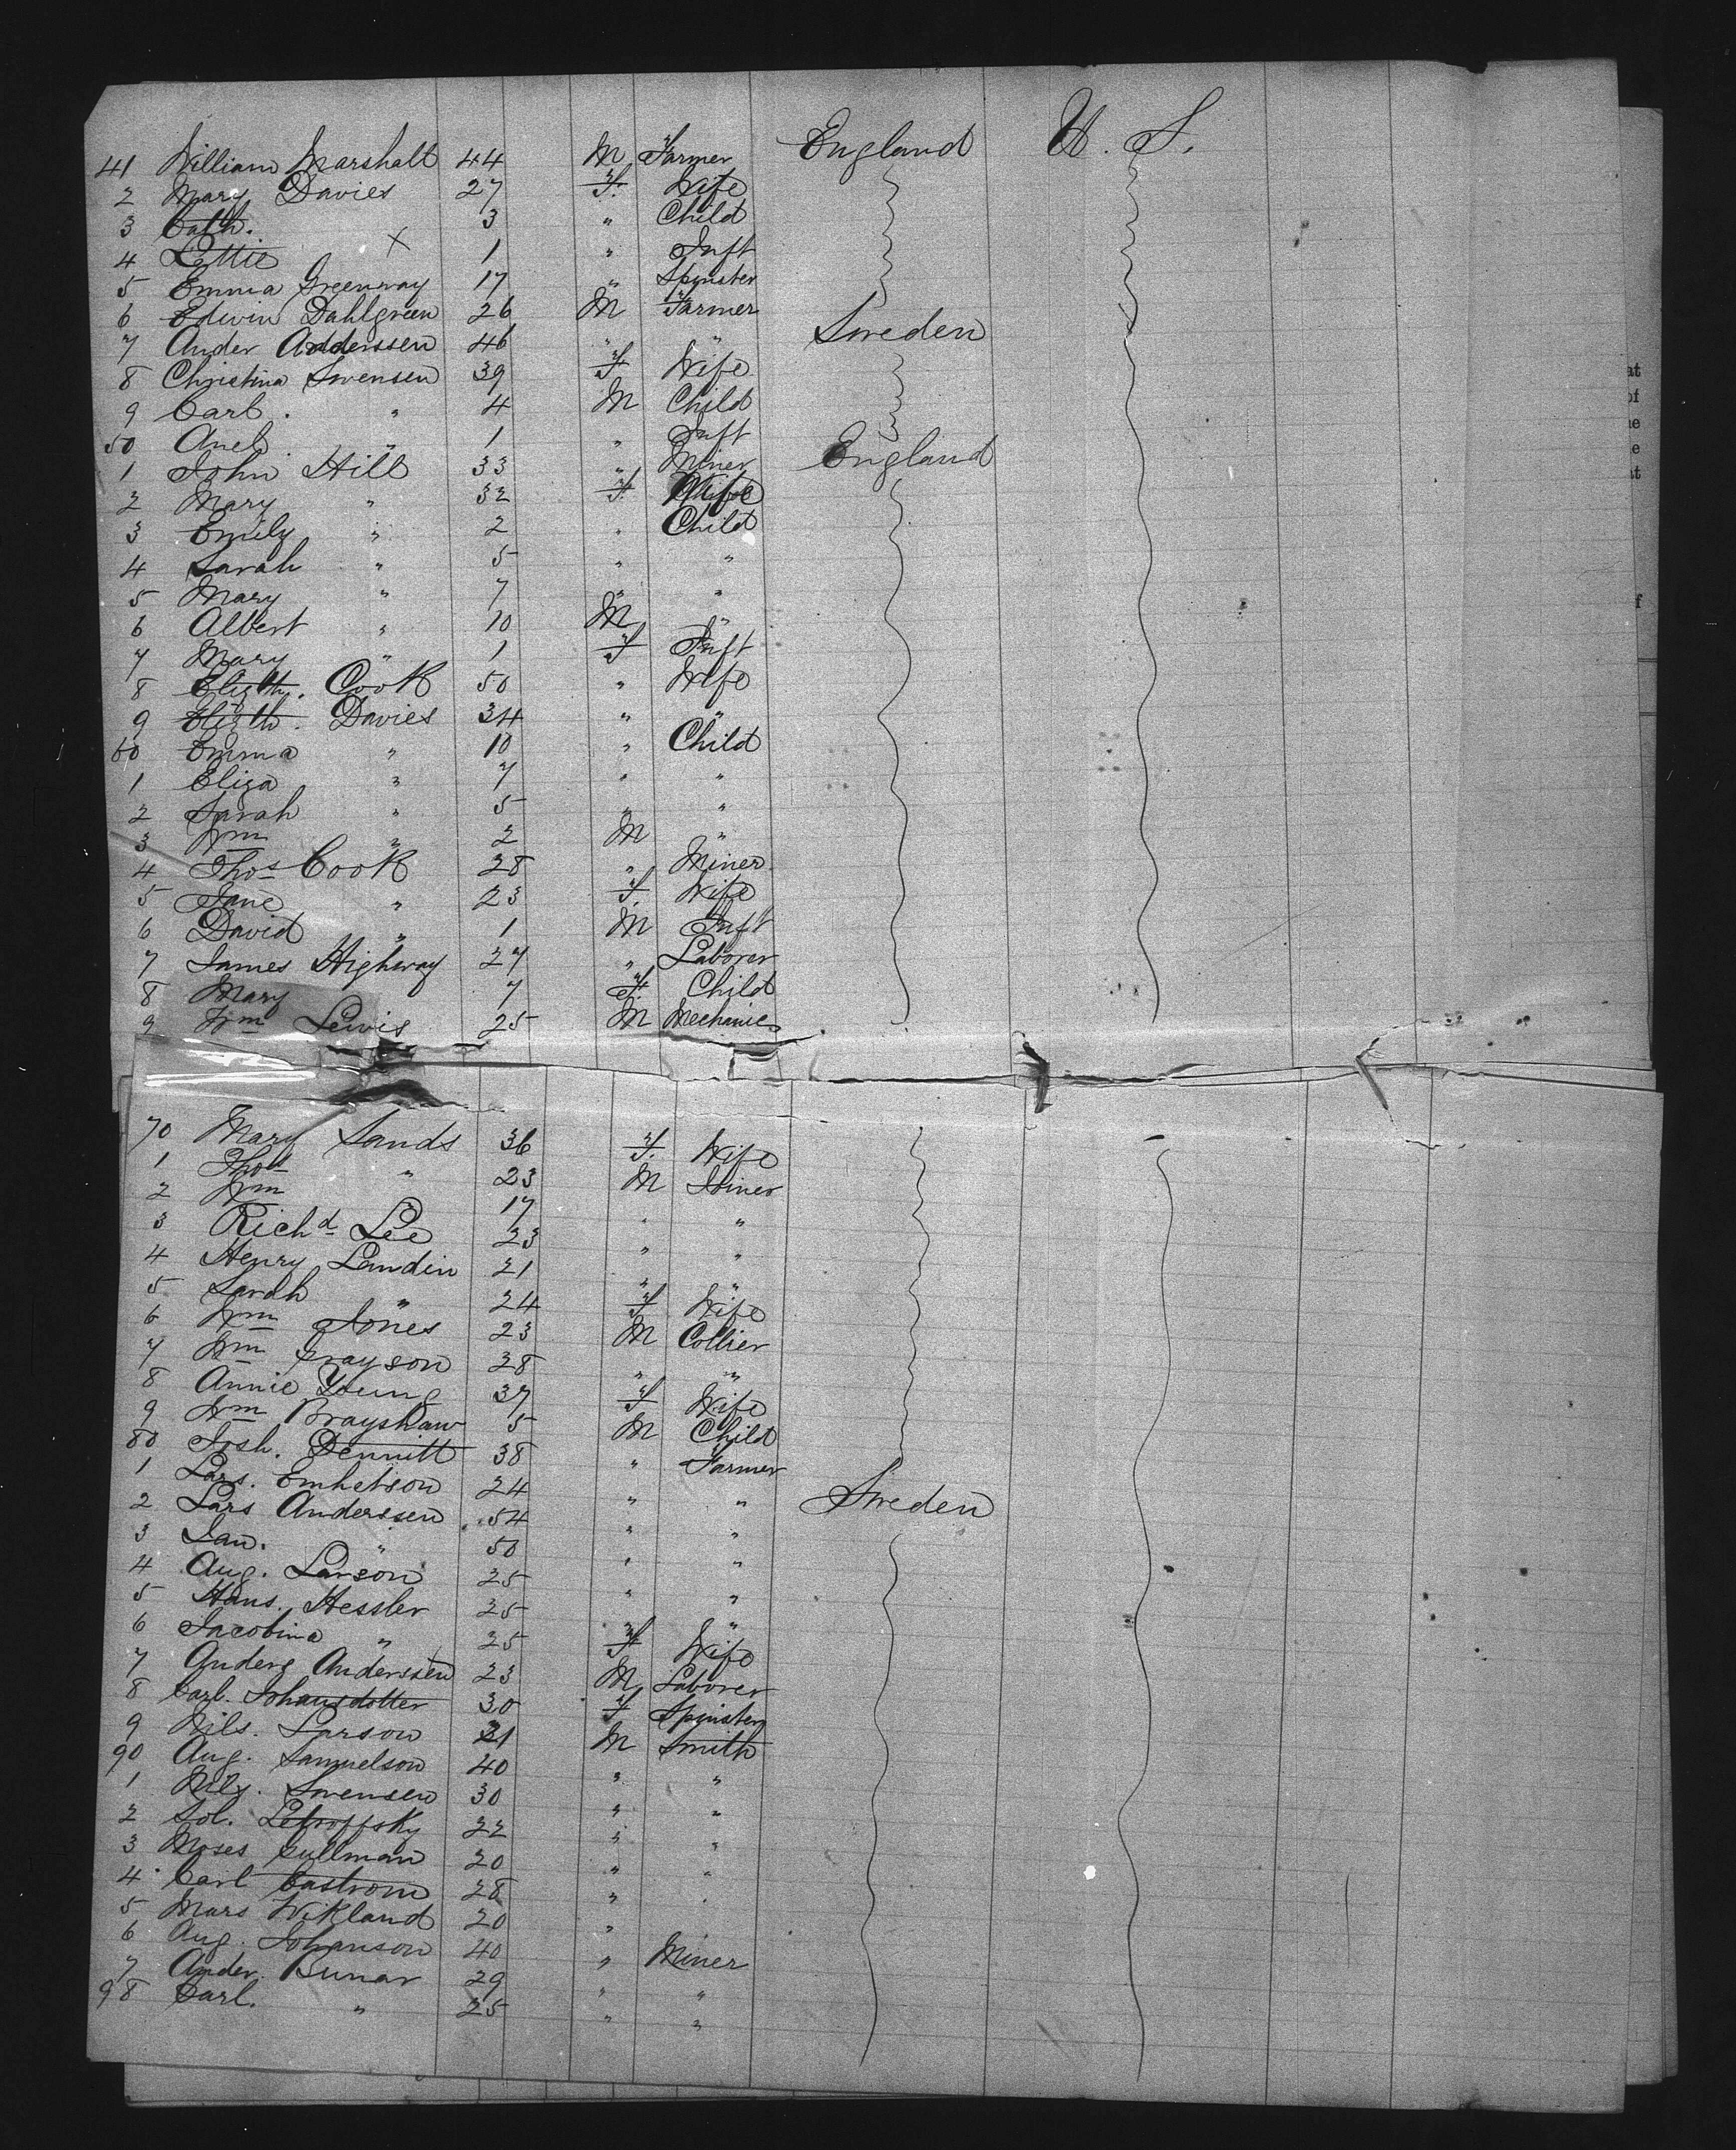 41 William Marshall 44 M Farmer England U. S.
2 Mary Davies 27 F. Wife
3 Cath. 3 " Child
4 Lettie X 1 " Inft
5 Emma Greenway 17 " Spinster
6 Edwin Dahlgreen 26 M Farmer
7 Ander Adderssen 46 " " Sweden
8 Christina Swensen 39 F Wife
9 Carl. " 4 M Child
50 Axel " 1 " Inft
1 John Hill 33 " Miner England
2 Mary " 32 F. Wife
3 Emily " 2 " Child
4 Sarah " 5 " "
5 Mary " 7 " "
6 Albert " 10 M "
7 Mary " 1 F Inft
8 Elizth. Cook 50 " Wife
9 Elizth. Davies 34 " "
60 Emma " 10 " Child
1 Eliza " 7 " "
2 Sarah " 5 " "
3 Wm " 2 M "
4 Thos Cook 28 " Miner
5 Jane " 23 F. Wife
6 David " 1 M Inft
7 James Highway 27 " Laborer
8 Mary 7 F. Child
9 Wm Lewis 25 M Mechanic
70 Mary Sands 36 F. Wife
1 Thos " 23 M Joiner
2 Wm " 17 " "
3 Richd Lee 23 " "
4 Henry Landin 21 " "
5 Sarah " 24 F Wife
6 Wm Jones 23 M Collier
7 Wm Grayson 28 " "
8 Annie Young 37 F Wife
9 Wm Brayshaw 5 M Child
80 Josh. Dennitt 38 " Farmer
1 Lars. Emhetson 24 " " Sweden
2 Lars Anderssen 54 " "
3 Jan. " 50 " "
4 Aug. Larson 25 " "
5 Hans. Hessler 25 " "
6 Jacobina " 25 F Wife
7 Anders Anderssen 23 M Laborer
8 Carl. Johansdotter 30 F Spinster
9 Nils. Larson 21 M Smith
90 Aug. Samuelson 40 " "
1 Nils. Swensen 30 " "
2 Sol. 22 " "
3 Moses Sullman 20 " "
4 Carl Castrom 28 " "
5 Mars Wikland 20 "
6 Aug. Johanson 40 " Miner
7 Ander. Bunar 29 " "
98 Carl. " 25 " "
at
of